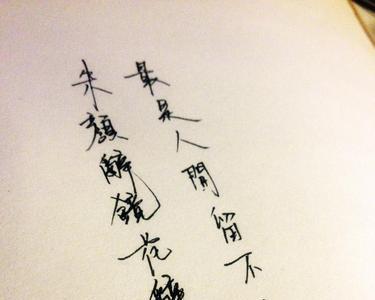 最是人間留不
朱顏辭鏡花辭